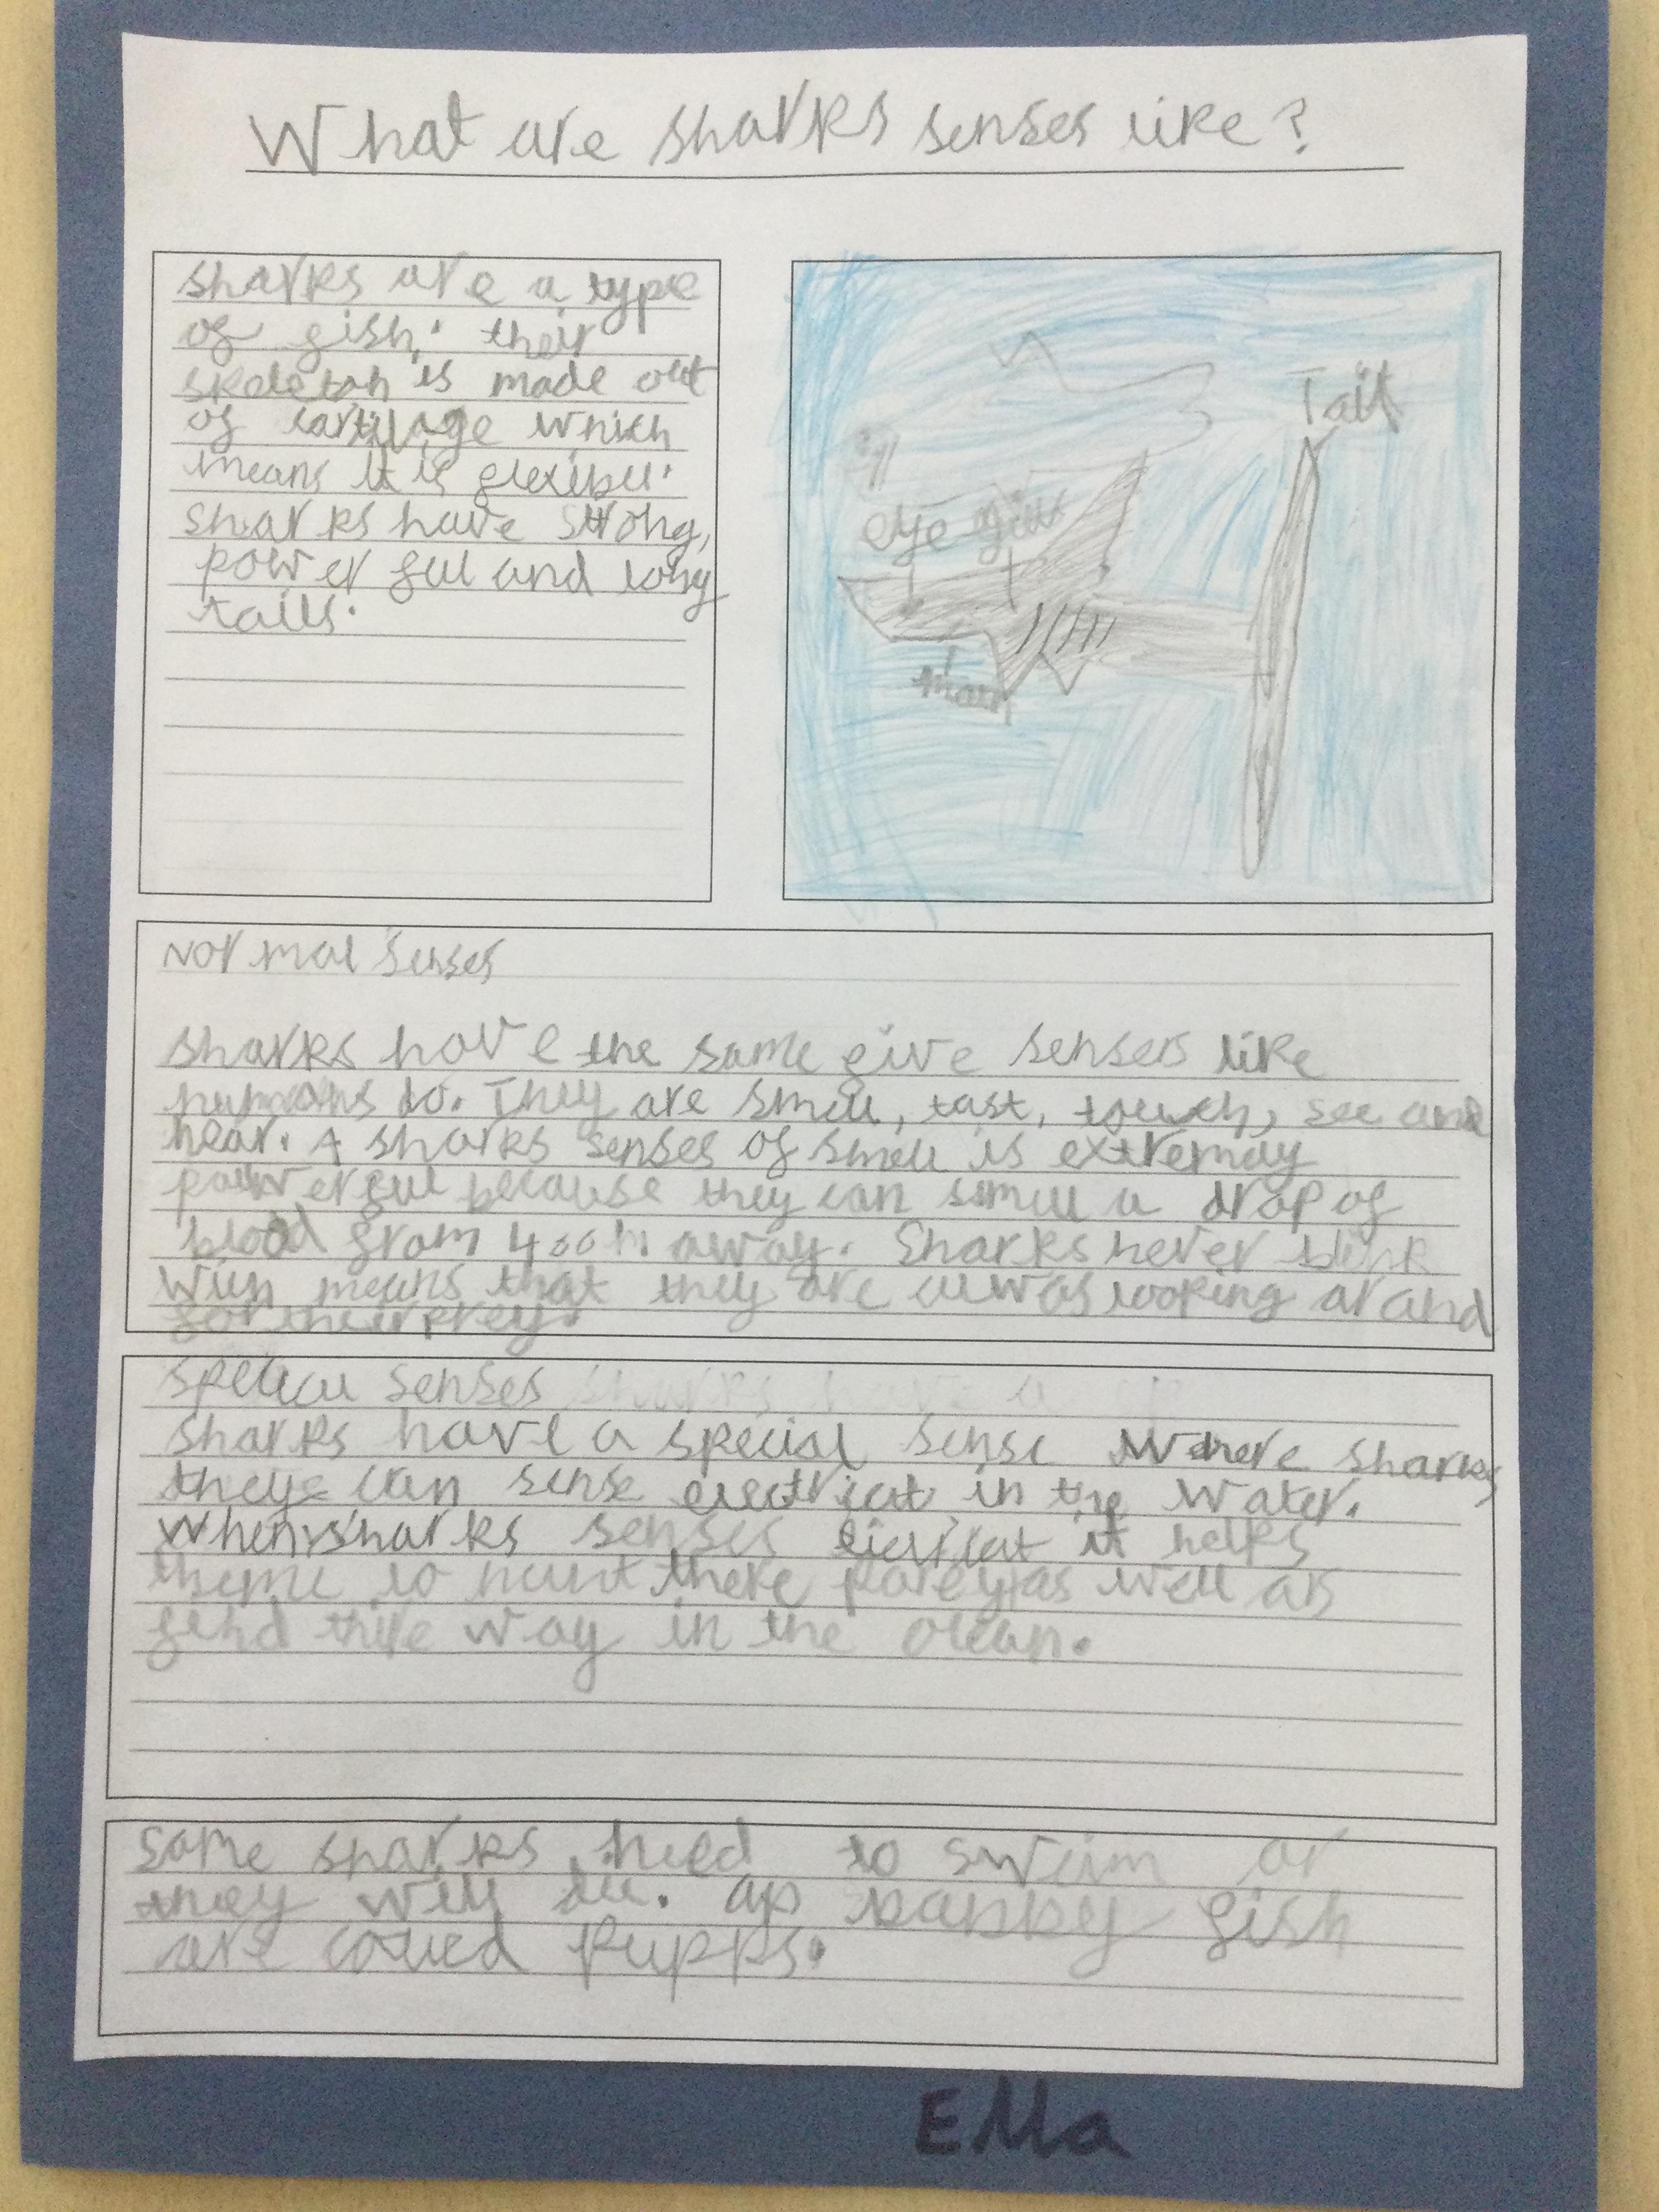 What are sharks senses like?
sharks are a type
of fish. their
skeleton is made out
of cartilage which
means it is flexibel.
sharks have strong,
powerful and long
tails.
Tail
eye gill
Normal senses
sharks have the same five senses like
humans do. They are smell, tast, touch, see and
hear. A sharks senses of smell is extremely
powerful because they can smell a drop of
blood from 400m away. Sharks never blink
wich means that they are always looking arand
for their prey.
special senses
sharks have a special sense where sharks
they can sense electricat in the water.
When sharks senses it helps
theme to hunt there as well as
find thire way in the ocean.
some sharks need to swim or
they will die. fish
are called pupps.
Ella